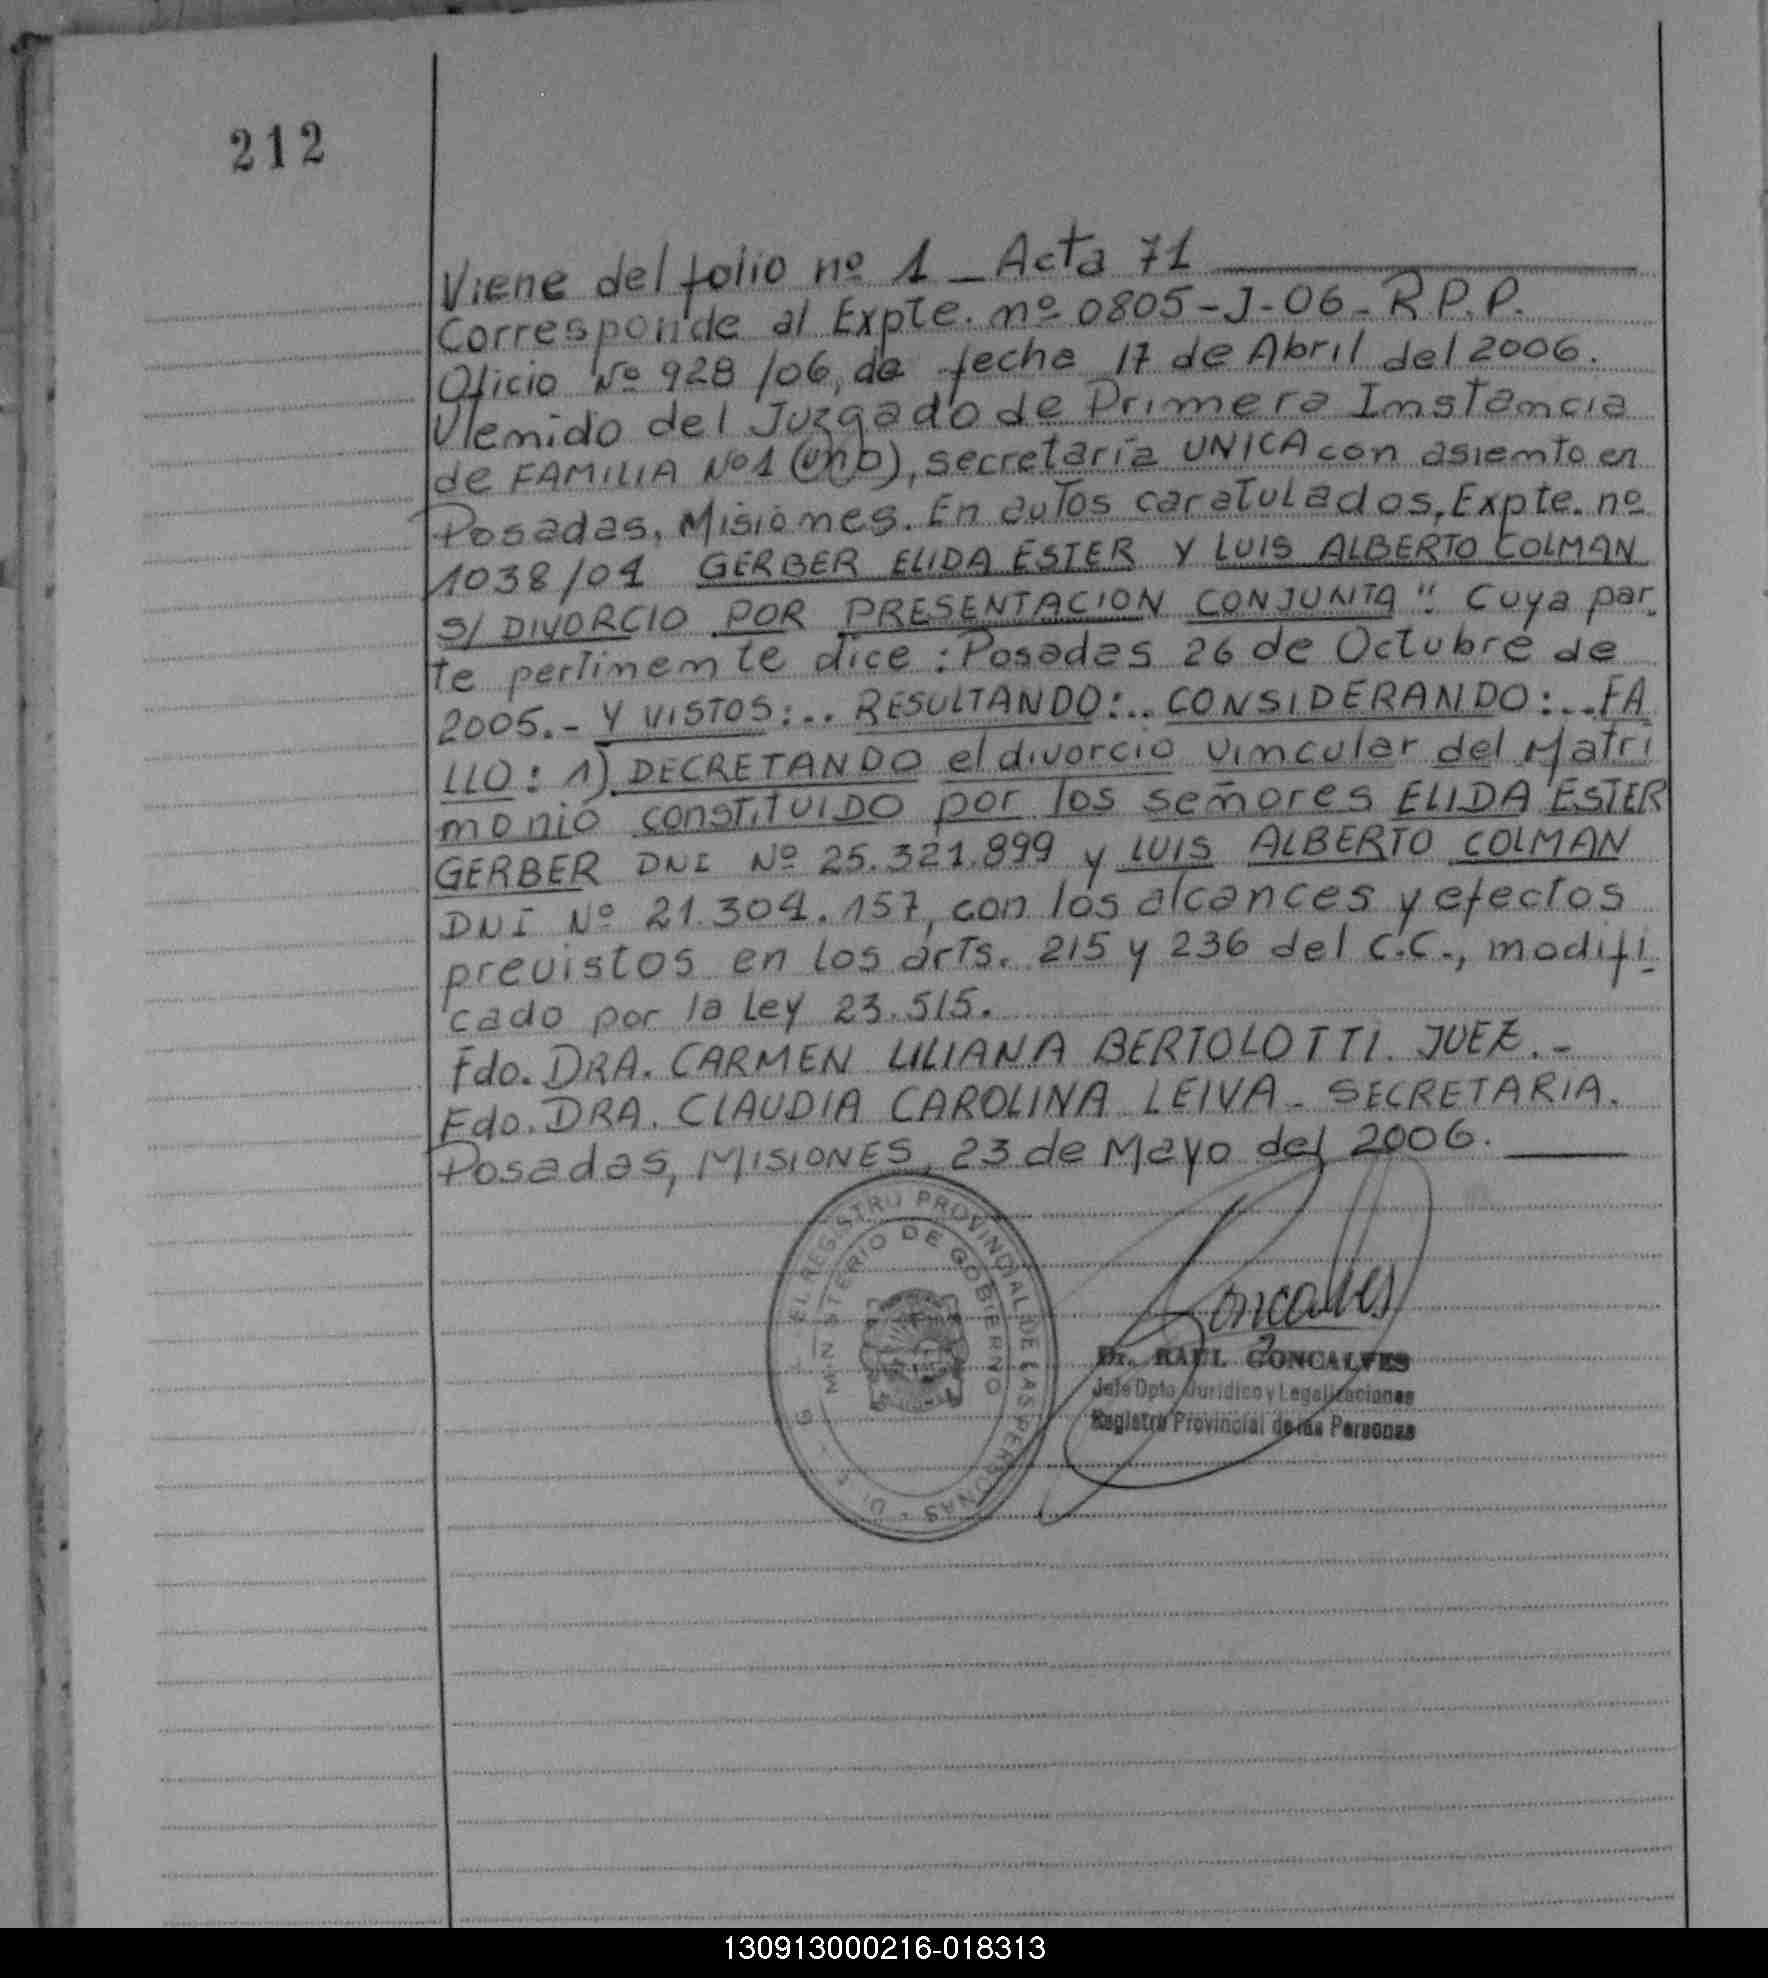 212
Viene del folio nº 1 - Acta 71
Corresponde al Expte. nº 0805-J-06-R.P.P.
Oficio Nº 928/06, de fecha 17 de Abril del 2006.
Venido del Juzgado de Primera Instancia
de FAMILIA Nº 1 (uno), secretaria UNICA con asiento en
Posadas, Misiones. En autos caratulados, Expte. nº
1038/04 GERBER ELIDA ESTER Y LUIS ALBERTO COLMAN
S/ DIVORCIO POR PRESENTACION CONJUNTA". Cuya par-
te pertinente dice: Posadas 26 de Octubre de
2005.- Y VISTOS:.. RESULTANDO:.. CONSIDERANDO:.. FA
LLO: 1) DECRETANDO el divorcio vincular del Matri
monio constituido por los señores ELIDA ESTER
GERBER DNI Nº 25.321.899 y LUIS ALBERTO COLMAN
DNI Nº 21.304.157, con los alcances y efectos
previstos en los arts. 215 y 236 del C.C., modifi-
cado por la Ley 23.515.
Fdo. DRA. CARMEN LILIANA BERTOLOTTI. JUEZ.-
Fdo. DRA. CLAUDIA CAROLINA LEIVA - SECRETARIA.
Posadas, MISIONES, 23 de Mayo del 2006.
EL REGISTRO PROVINCIAL DE LAS PERSONAS
MINISTERIO DE GOBIERNO
Goncalves
Dr. RAUL GONCALVES
Jefe Dpto Juridico y Legalizaciones
Registro Provincial de las Personas
130913000216-018313